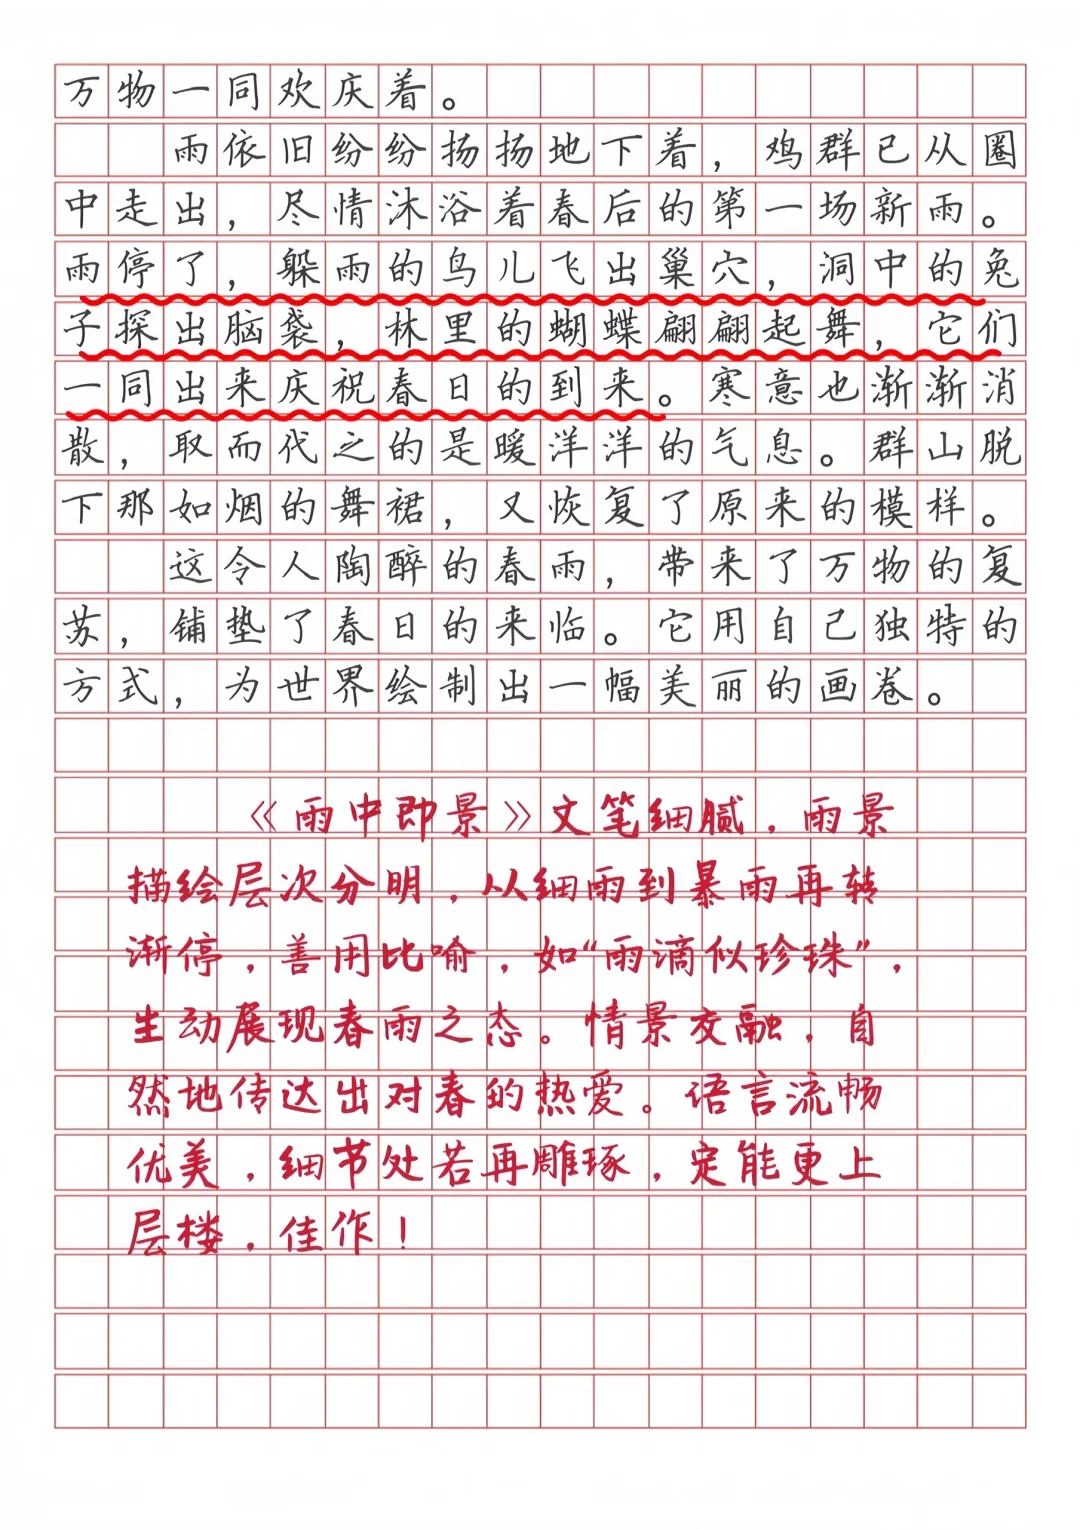 万物一同欢庆着。
雨依旧纷纷扬扬地下着，鸡群已从圈
中走出，尽情沐浴着春后的第一场新雨。
雨停了，躲雨的鸟儿飞出巢穴，洞中的兔
子探出脑袋，林里的蝴蝶翩翩起舞，它们
一同出来庆祝春日的到来。寒意也渐渐消
散，取而代之的是暖洋洋的气息。群山脱
下那如烟的舞裙，又恢复了原来的模样。
这令人陶醉的春雨，带来了万物的复
苏，铺垫了春日的来临。它用自己独特的
方式，为世界绘制出一幅美丽的画卷。
《雨中即景》文笔细腻，雨景
描绘层次分明，从细雨到暴雨再转
渐停，善用比喻，如“雨滴似珍珠”，
生动展现春雨之态。情景交融，自
然地传达出对春的热爱。语言流畅
优美，细节处若再雕琢，定能更上
层楼，佳作！